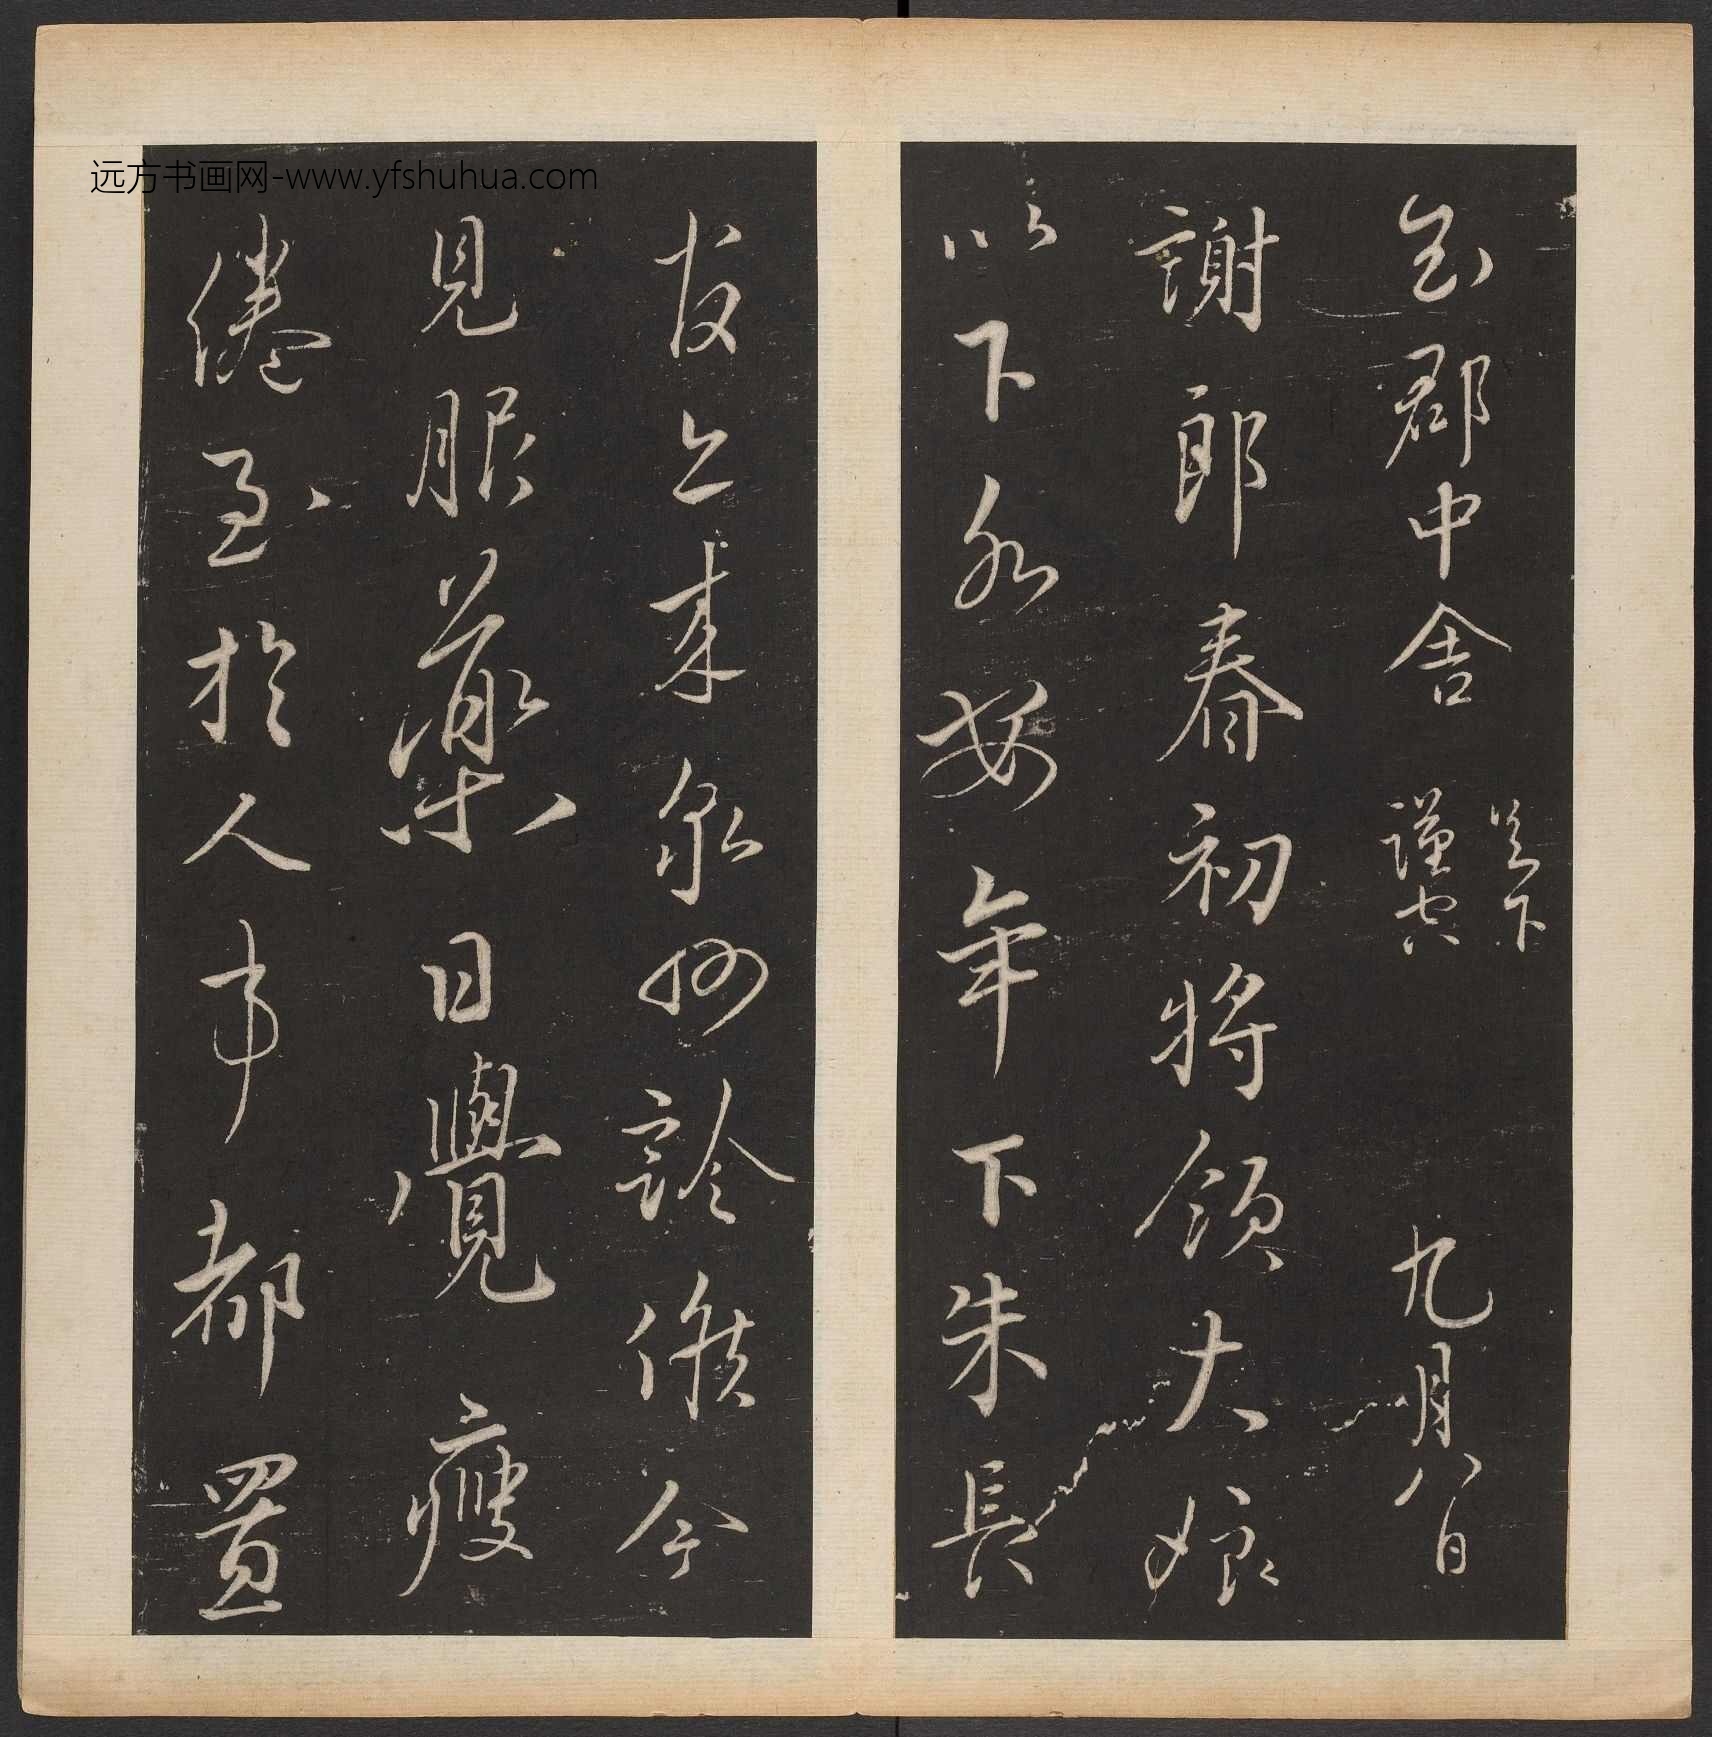 郡中舍 足下 謹空 九月八日
謝郎春初將領大娘
以下各安年下朱長
友上來泉州診候今
見服藥日覺瘦
倦至於人事都置
远方书画网-www.yfshuhua.com